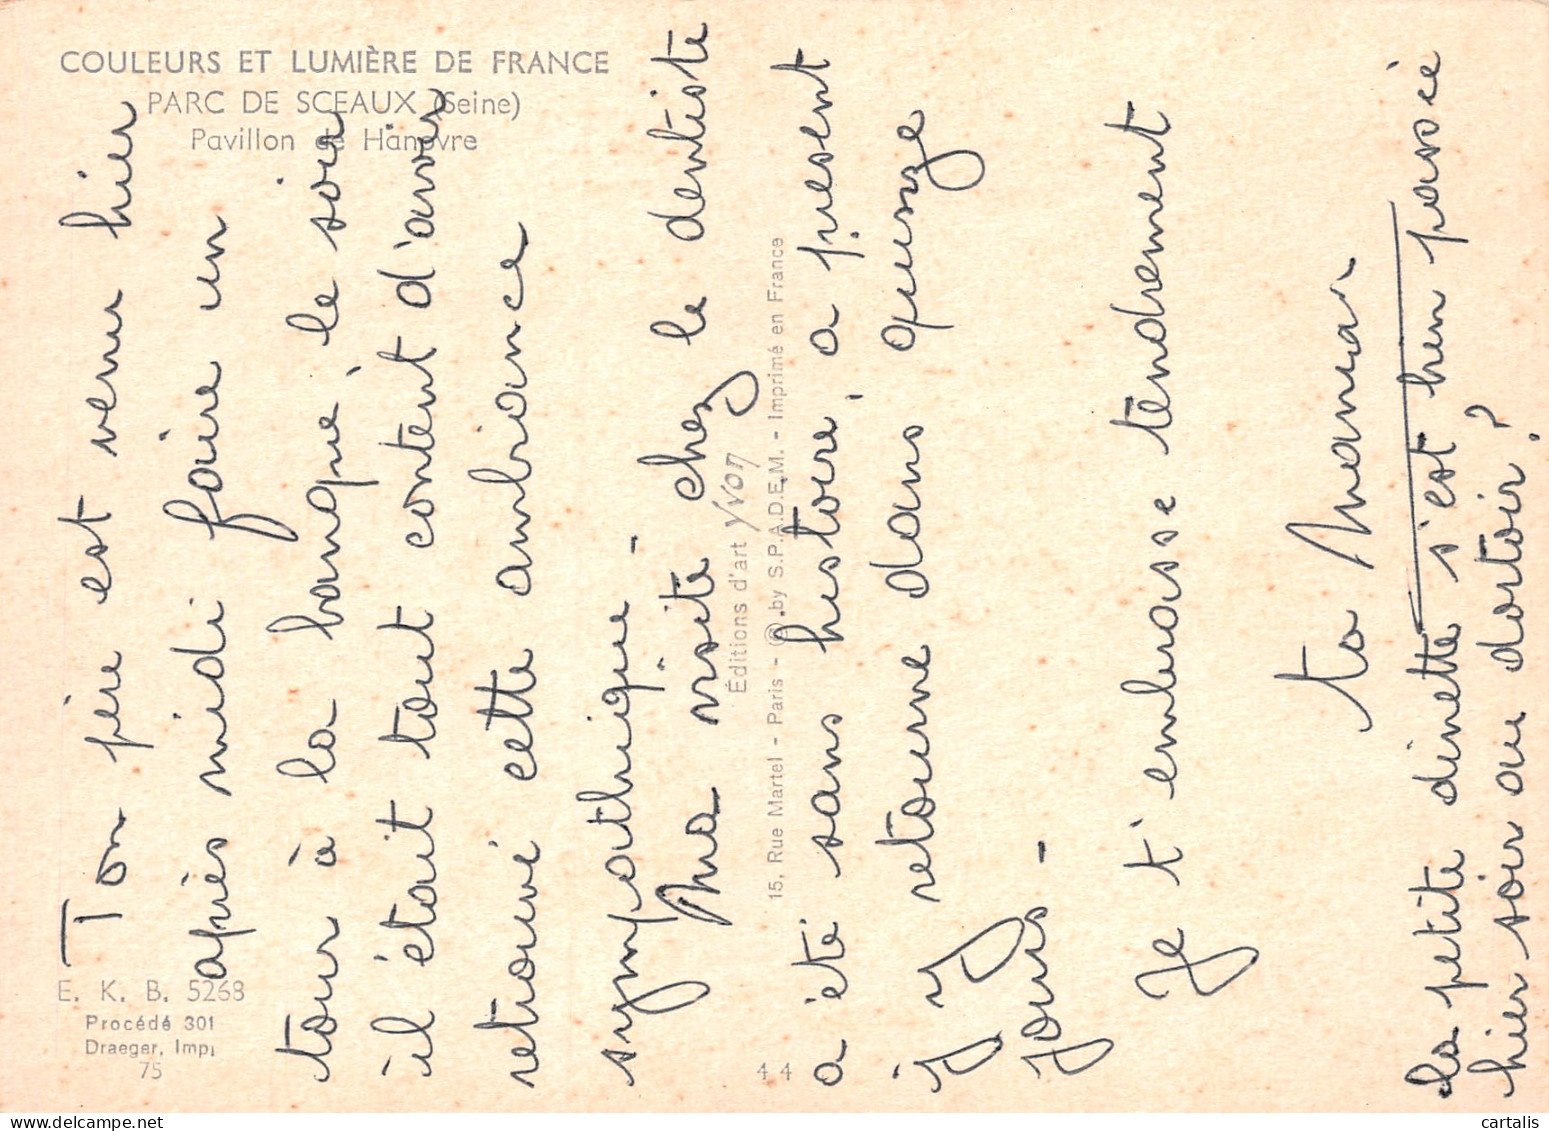 COULEURS ET LUMIÈRE DE FRANCE
PARC DE SCEAUX (Seine)
Pavillon de Hanovre
E. K. B. 5268
Procédé 301
Draeger, Imp.
75
Éditions d'art Yvon
15, Rue Martel - Paris - © by S.P.A.D.E.M. - Imprimé en France
44
Ton père est venu hier
après midi faire un
tour à la banque, le soir
il était tout content d'avoir
retrouvé cette ambiance
sympathique -
Ma visite chez le dentiste
a été sans histoire, à présent
j'y retourne dans quinze
jours -
Je t'embrasse tendrement
ta Maman
La petite dinette s'est bien passée
hier soir au dortoir ?
cartalis